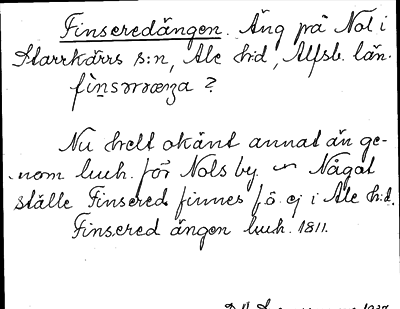 Finseredängen. Äng på Nol i
Starrkärrs s:n, Ale h:d, Älfsb. län.
Nu helt okänt annat än ge-
nom luch. för Nols by. ~ Något
ställe Finsered finnes fö. ej i Ale h:d.
Finsered ängen luch. 1811.